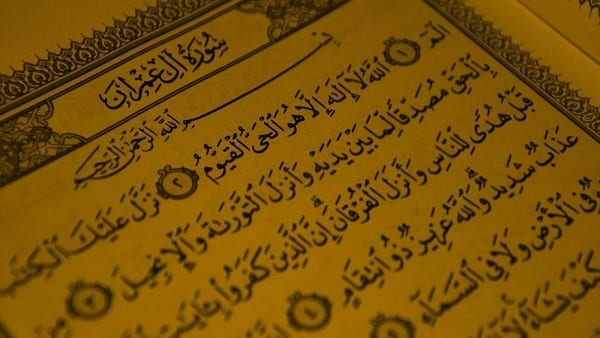 سُورَةُ آلِ عِمْرَانَ
بِسْمِ ٱللَّهِ ٱلرَّحْمَٰنِ ٱلرَّحِيمِ
الٓمٓ ١ ٱللَّهُ لَآ إِلَٰهَ إِلَّا هُوَ ٱلْحَىُّ ٱلْقَيُّومُ ٢ نَزَّلَ عَلَيْكَ ٱلْكِتَٰبَ
بِٱلْحَقِّ مُصَدِّقًا لِّمَا بَيْنَ يَدَيْهِ وَأَنزَلَ ٱلتَّوْرَىٰةَ وَٱلْإِنجِيلَ ٣ مِن
قَبْلُ هُدًى لِّلنَّاسِ وَأَنزَلَ ٱلْفُرْقَانَ ۗ إِنَّ ٱلَّذِينَ كَفَرُوا۟ بِـَٔايَٰتِ
عَذَابٌ شَدِيدٌ ۗ وَٱللَّهُ عَزِيزٌ ذُو ٱنتِقَامٍ ٤
فِى ٱلْأَرْضِ وَلَا فِى ٱلسَّمَآءِ
كَيْفَ يَشَآءُ ۚ لَآ